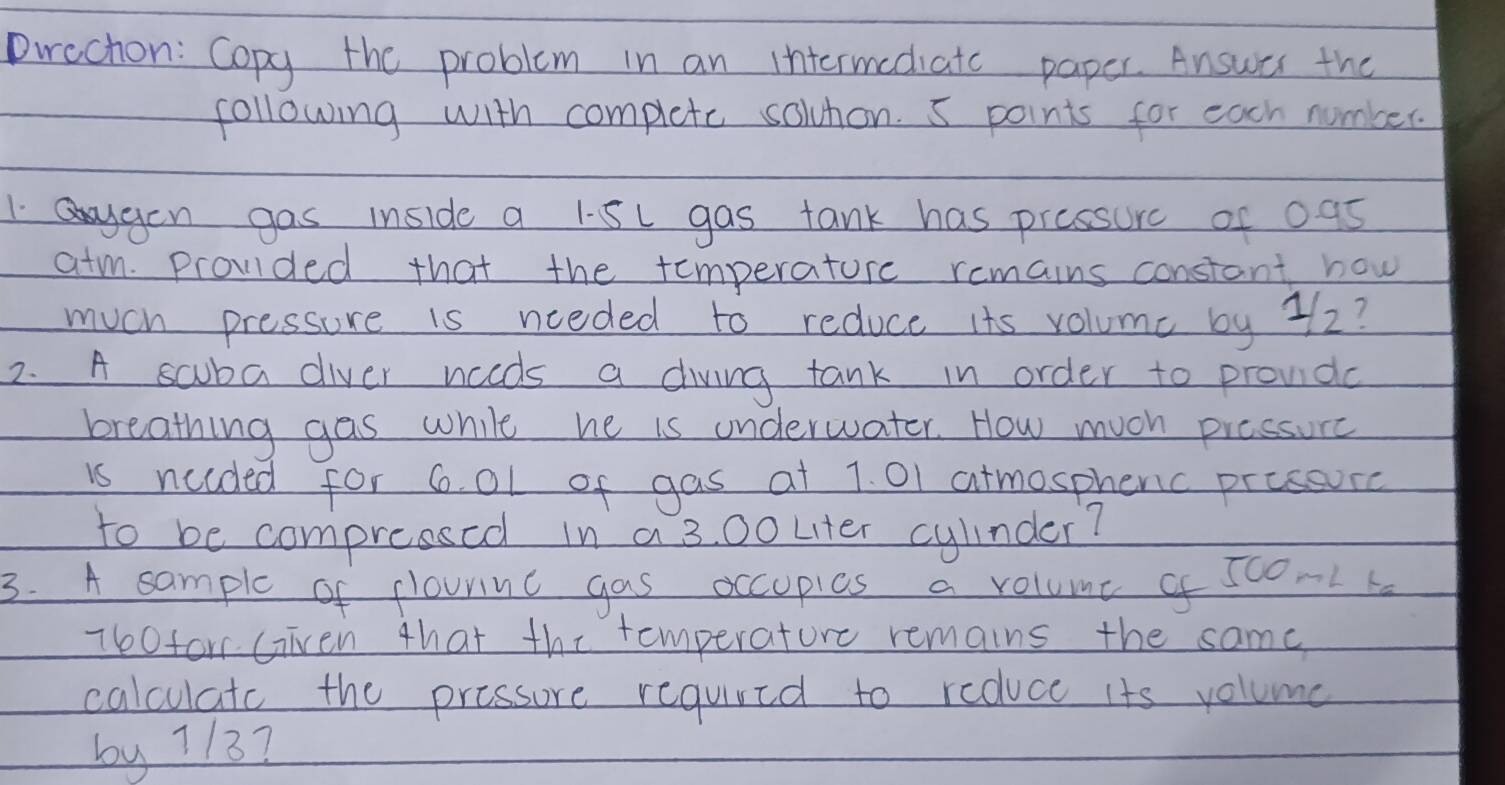 Direction: Copy the problem in an intermediate paper. Answer the
following with complete solution. 5 points for each number.
1. Oxygen gas inside a 1.5L gas tank has pressure of 0.95
atm. Provided that the temperature remains constant, how
much pressure is needed to reduce its volume by 1/2?
2. A scuba diver needs a diving tank in order to provide
breathing gas while he is underwater. How much pressure
is needed for 6.0L of gas at 1.01 atmospheric pressure
to be compressed in a 3.00 Liter cylinder?
3. A sample of flourine gas occupies a volume of 500mL
760torr. Given that the temperature remains the same,
calculate the pressure required to reduce its volume
by 1/3?